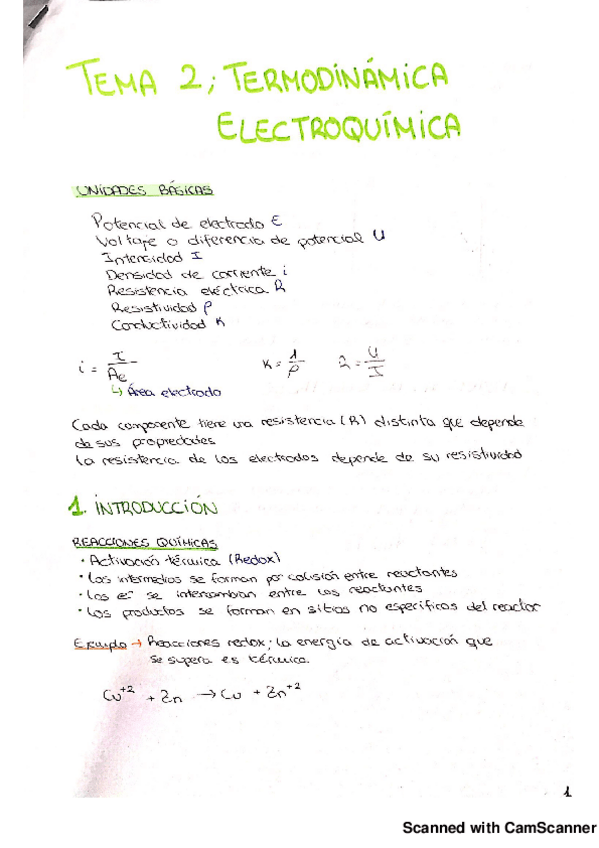 TEMA 2; TERMODINÁMICA
ELECTROQUÍMICA
UNIDADES BÁSICAS
Potencial de electrodo E
Voltaje o diferencia de potencial U
Intensidad I
Densidad de corriente i
Resistencia eléctrica R
Resistividad ρ
Conductividad K
i = I / Ae    K = 1 / ρ    R = U / I
↳ Área electrodo
Cada componente tiene una resistencia (R) distinta que depende
de sus propiedades
La resistencia de los electrodos depende de su resistividad
1. INTRODUCCIÓN
REACCIONES QUÍMICAS
· Activación térmica (Redox)
· Los intermedios se forman por colisión entre reactantes
· Los e⁻ se intercambian entre los reactantes
· Los productos se forman en sitios no específicos del reactor
Ejemplo → Reacciones redox; la energía de activación que
se supera es térmica.
Cu⁺² + Zn → Cu + Zn⁺²
1
Scanned with CamScanner